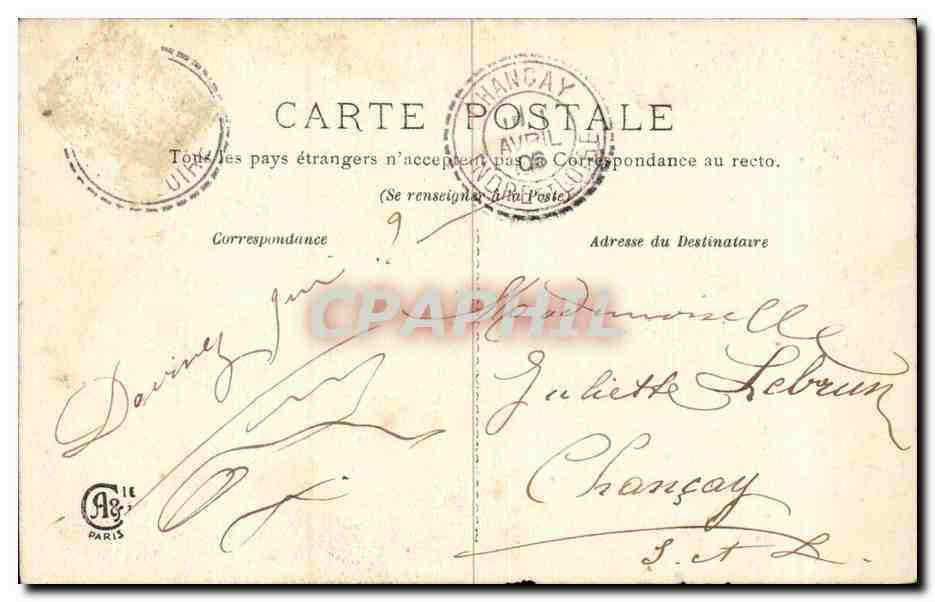 CARTE POSTALE
Tous les pays étrangers n'acceptent pas la Correspondance au recto.
(Se renseigner à la Poste)
Correspondance
Adresse du Destinataire
CHANCAY
AVRIL
INDRE ET LOIRE
OIRE
Devinez qui ..?
Mademoiselle
Juliette Lebrun
Chançay
I. et L.
CPAPHIL
A & CIE
PARIS